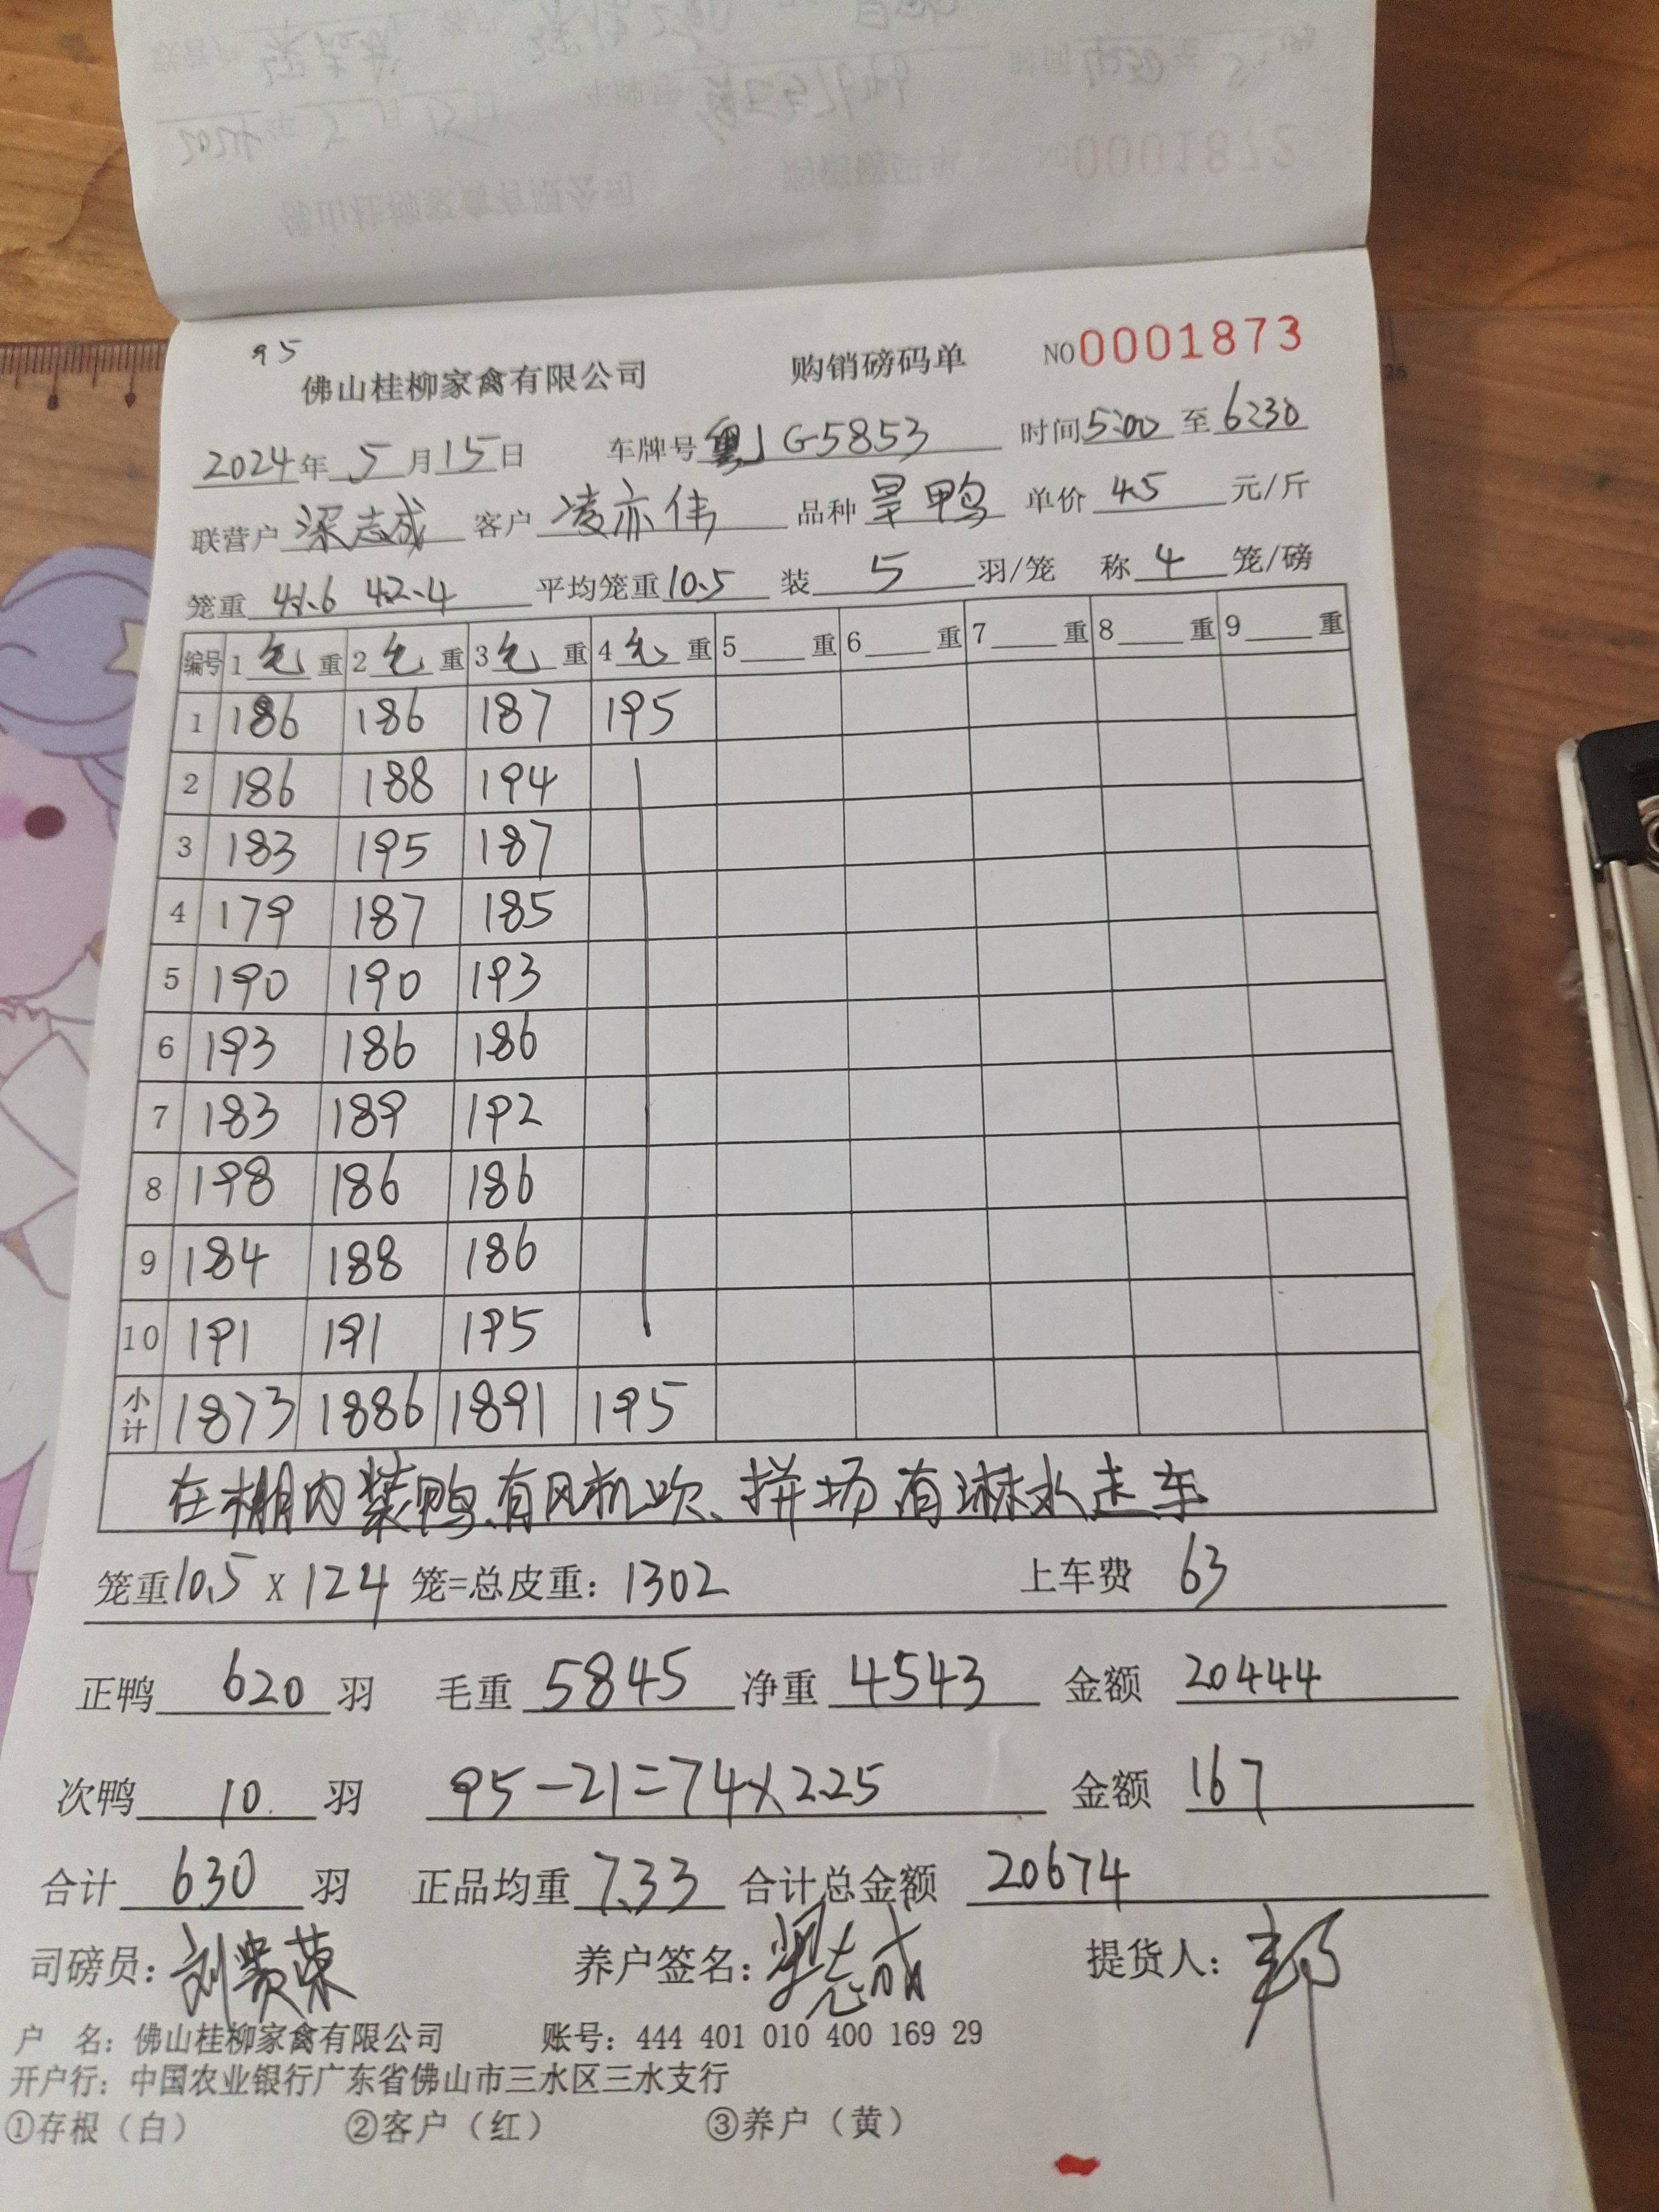 95
佛山桂柳家禽有限公司 购销磅码单 NO0001873
2024年 5月15日 车牌号粤J G5853 时间5:00 至 6:30
联营户 梁志成 客户 凌亦伟 品种 旱鸭 单价 4.5 元/斤
笼重 41.6 42.4 平均笼重10.5 装 5 羽/笼 称 4 笼/磅
编号 1 毛 重 2 毛 重 3 毛 重 4 毛 重 5 重 6 重 7 重 8 重 9 重
1 186 186 187 195
2 186 188 194
3 183 195 187
4 179 187 185
5 190 190 193
6 193 186 186
7 183 189 192
8 198 186 186
9 184 188 186
10 191 191 195
小计 1873 1886 1891 195
在棚内装鸭、有风机吹、拼场有淋水走车
笼重10.5 X 124 笼=总皮重：1302 上车费 63
正鸭 620 羽 毛重 5845 净重 4543 金额 20444
次鸭 10 羽 95-21=74×2.25 金额 167
合计 630 羽 正品均重 7.33 合计总金额 20674
司磅员：刘贵荣 养户签名：梁志成 提货人：
户 名：佛山桂柳家禽有限公司 账号：444 401 010 400 169 29
开户行：中国农业银行广东省佛山市三水区三水支行
①存根（白） ②客户（红） ③养户（黄）